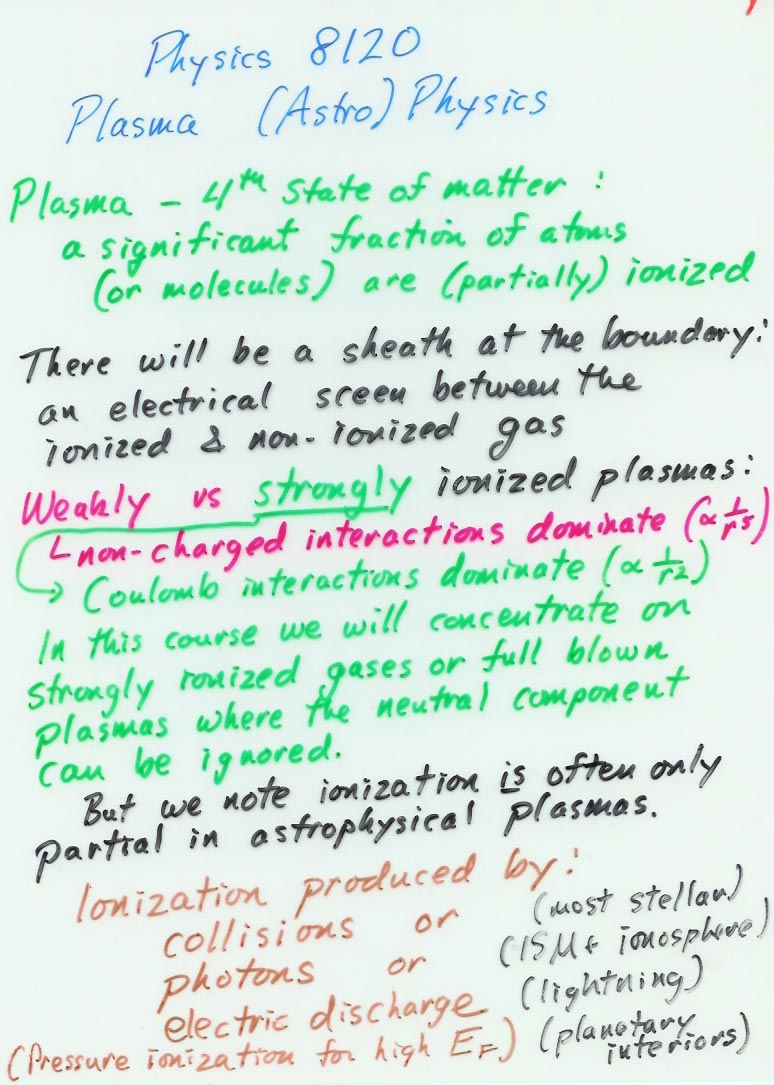 Physics 8120
Plasma (Astro) Physics
Plasma – 4th State of matter :
a significant fraction of atoms
(or molecules) are (partially) ionized
There will be a sheath at the boundary:
an electrical sceen between the
ionized & non-ionized gas
Weakly vs strongly ionized plasmas:
non-charged interactions dominate (∝ 1/r⁵)
→ Coulomb interactions dominate (∝ 1/r²)
In this course we will concentrate on
strongly ionized gases or full blown
plasmas where the neutral component
can be ignored.
But we note ionization is often only
partial in astrophysical plasmas.
Ionization produced by:
collisions or (most stellar)
photons or (ISM & ionosphere)
electric discharge (lightning)
(Pressure ionization for high E_F) (planetary
interiors)